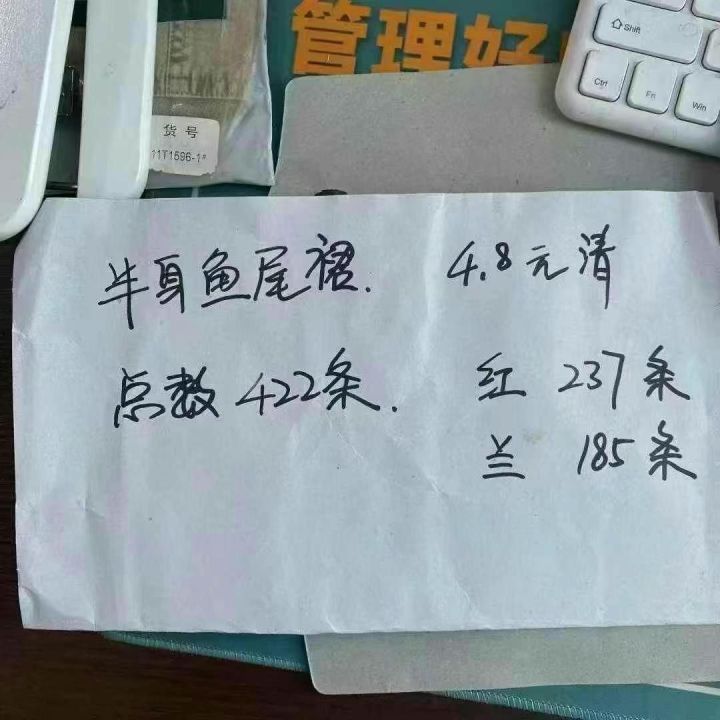 管理好
Shift
Ctrl Fn Win
货号
11T1596-1#
半身鱼尾裙. 4.8元清
点数422条. 红 237条
兰 185条